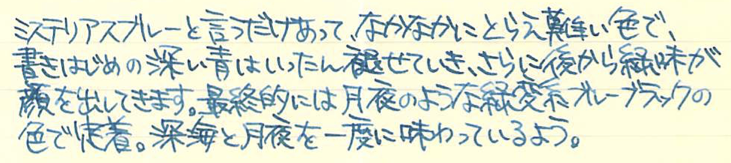 ミステリアスブルーと言うだけあって、なかなかにとらえ難い色で、
書きはじめの深い青はいったん褪せていき、さらに後から緑味が
顔を出してきます。最終的には月夜のような緑変系ブルーブラックの
色で定着。深海と月夜を一度に味わっているよう。